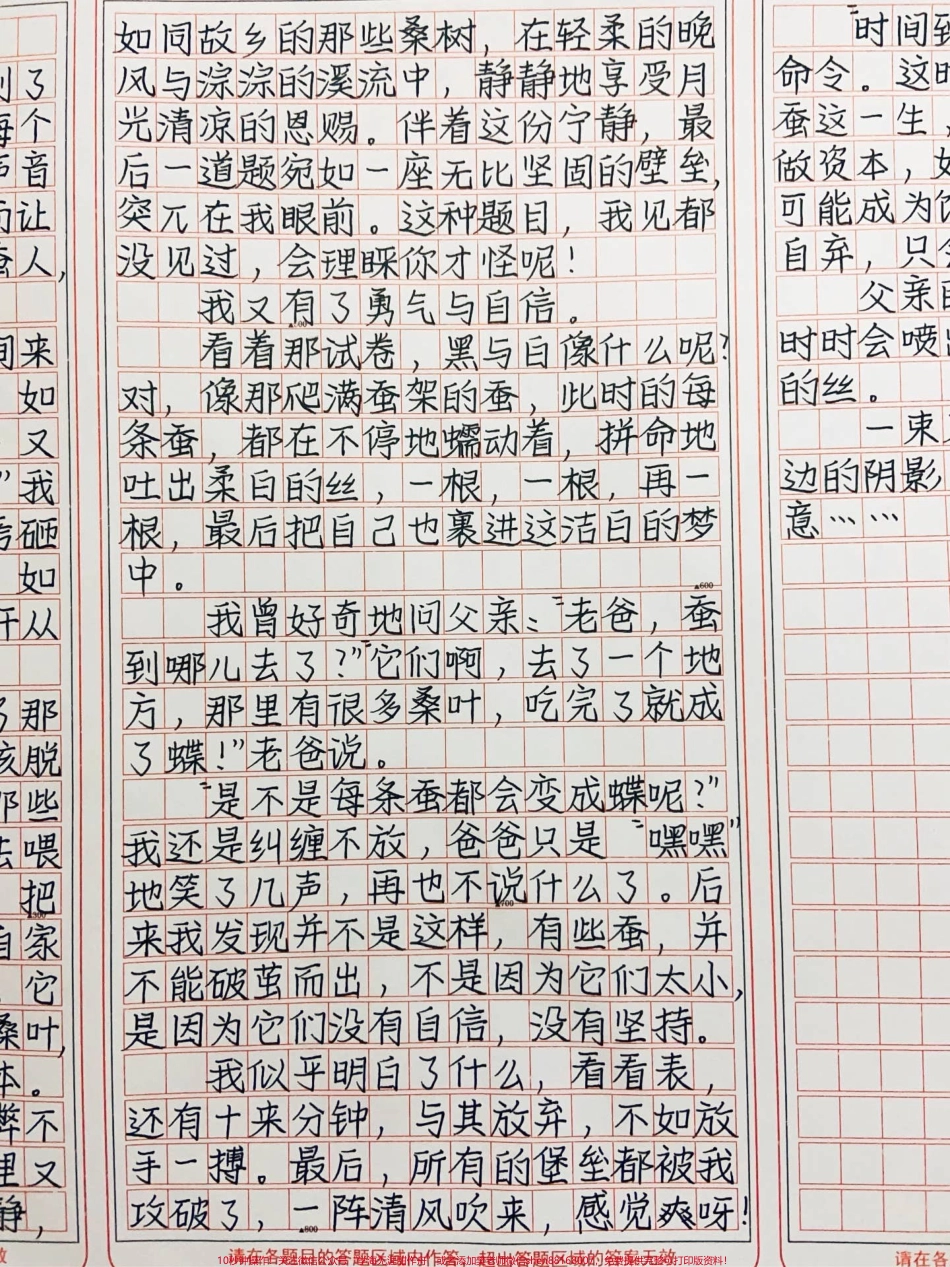 如同故乡的那些桑树，在轻柔的晚
风与淙淙的溪流中，静静地享受月
光清凉的恩赐。伴着这份宁静，最
后一道题宛如一座无比坚固的壁垒，
突兀在我眼前。这种题目，我见都
没见过，会理睬你才怪呢！
我又有了勇气与自信。
看着那试卷，黑与白像什么呢？
对，像那爬满蚕架的蚕，此时的每
条蚕，都在不停地蠕动着，拼命地
吐出柔白的丝，一根，一根，再一
根，最后把自己也裹进这洁白的梦
中。
▲600
我曾好奇地问父亲：“老爸，蚕
到哪儿去了？”“它们啊，去了一个地
方，那里有很多桑叶，吃完了就成
了蝶！”老爸说。
“是不是每条蚕都会变成蝶呢？”
我还是纠缠不放，爸爸只是“嘿嘿”
地笑了几声，再也不说什么了。后
▲700
来我发现并不是这样，有些蚕，并
不能破茧而出，不是因为它们太小，
是因为它们没有自信，没有坚持。
我似乎明白了什么，看看表，
还有十来分钟，与其放弃，不如放
手一搏。最后，所有的堡垒都被我
攻破了，一阵清风吹来，感觉爽呀！
▲800
请在各题目的答题区域内作答，超出答题区域的答案无效
了
每个
声音
而让
蚕人，
间来
如
又
”我
砸
如
从
那
脱
那些
去喂
把
自家
它
桑叶，
体。
不
里又
静，
效
“时间到
命令。这时
蚕这一生
做资本，如
可能成为
自弃，只
父亲的
时时会喷
的丝。
一束
边的阴影
意……
请在各